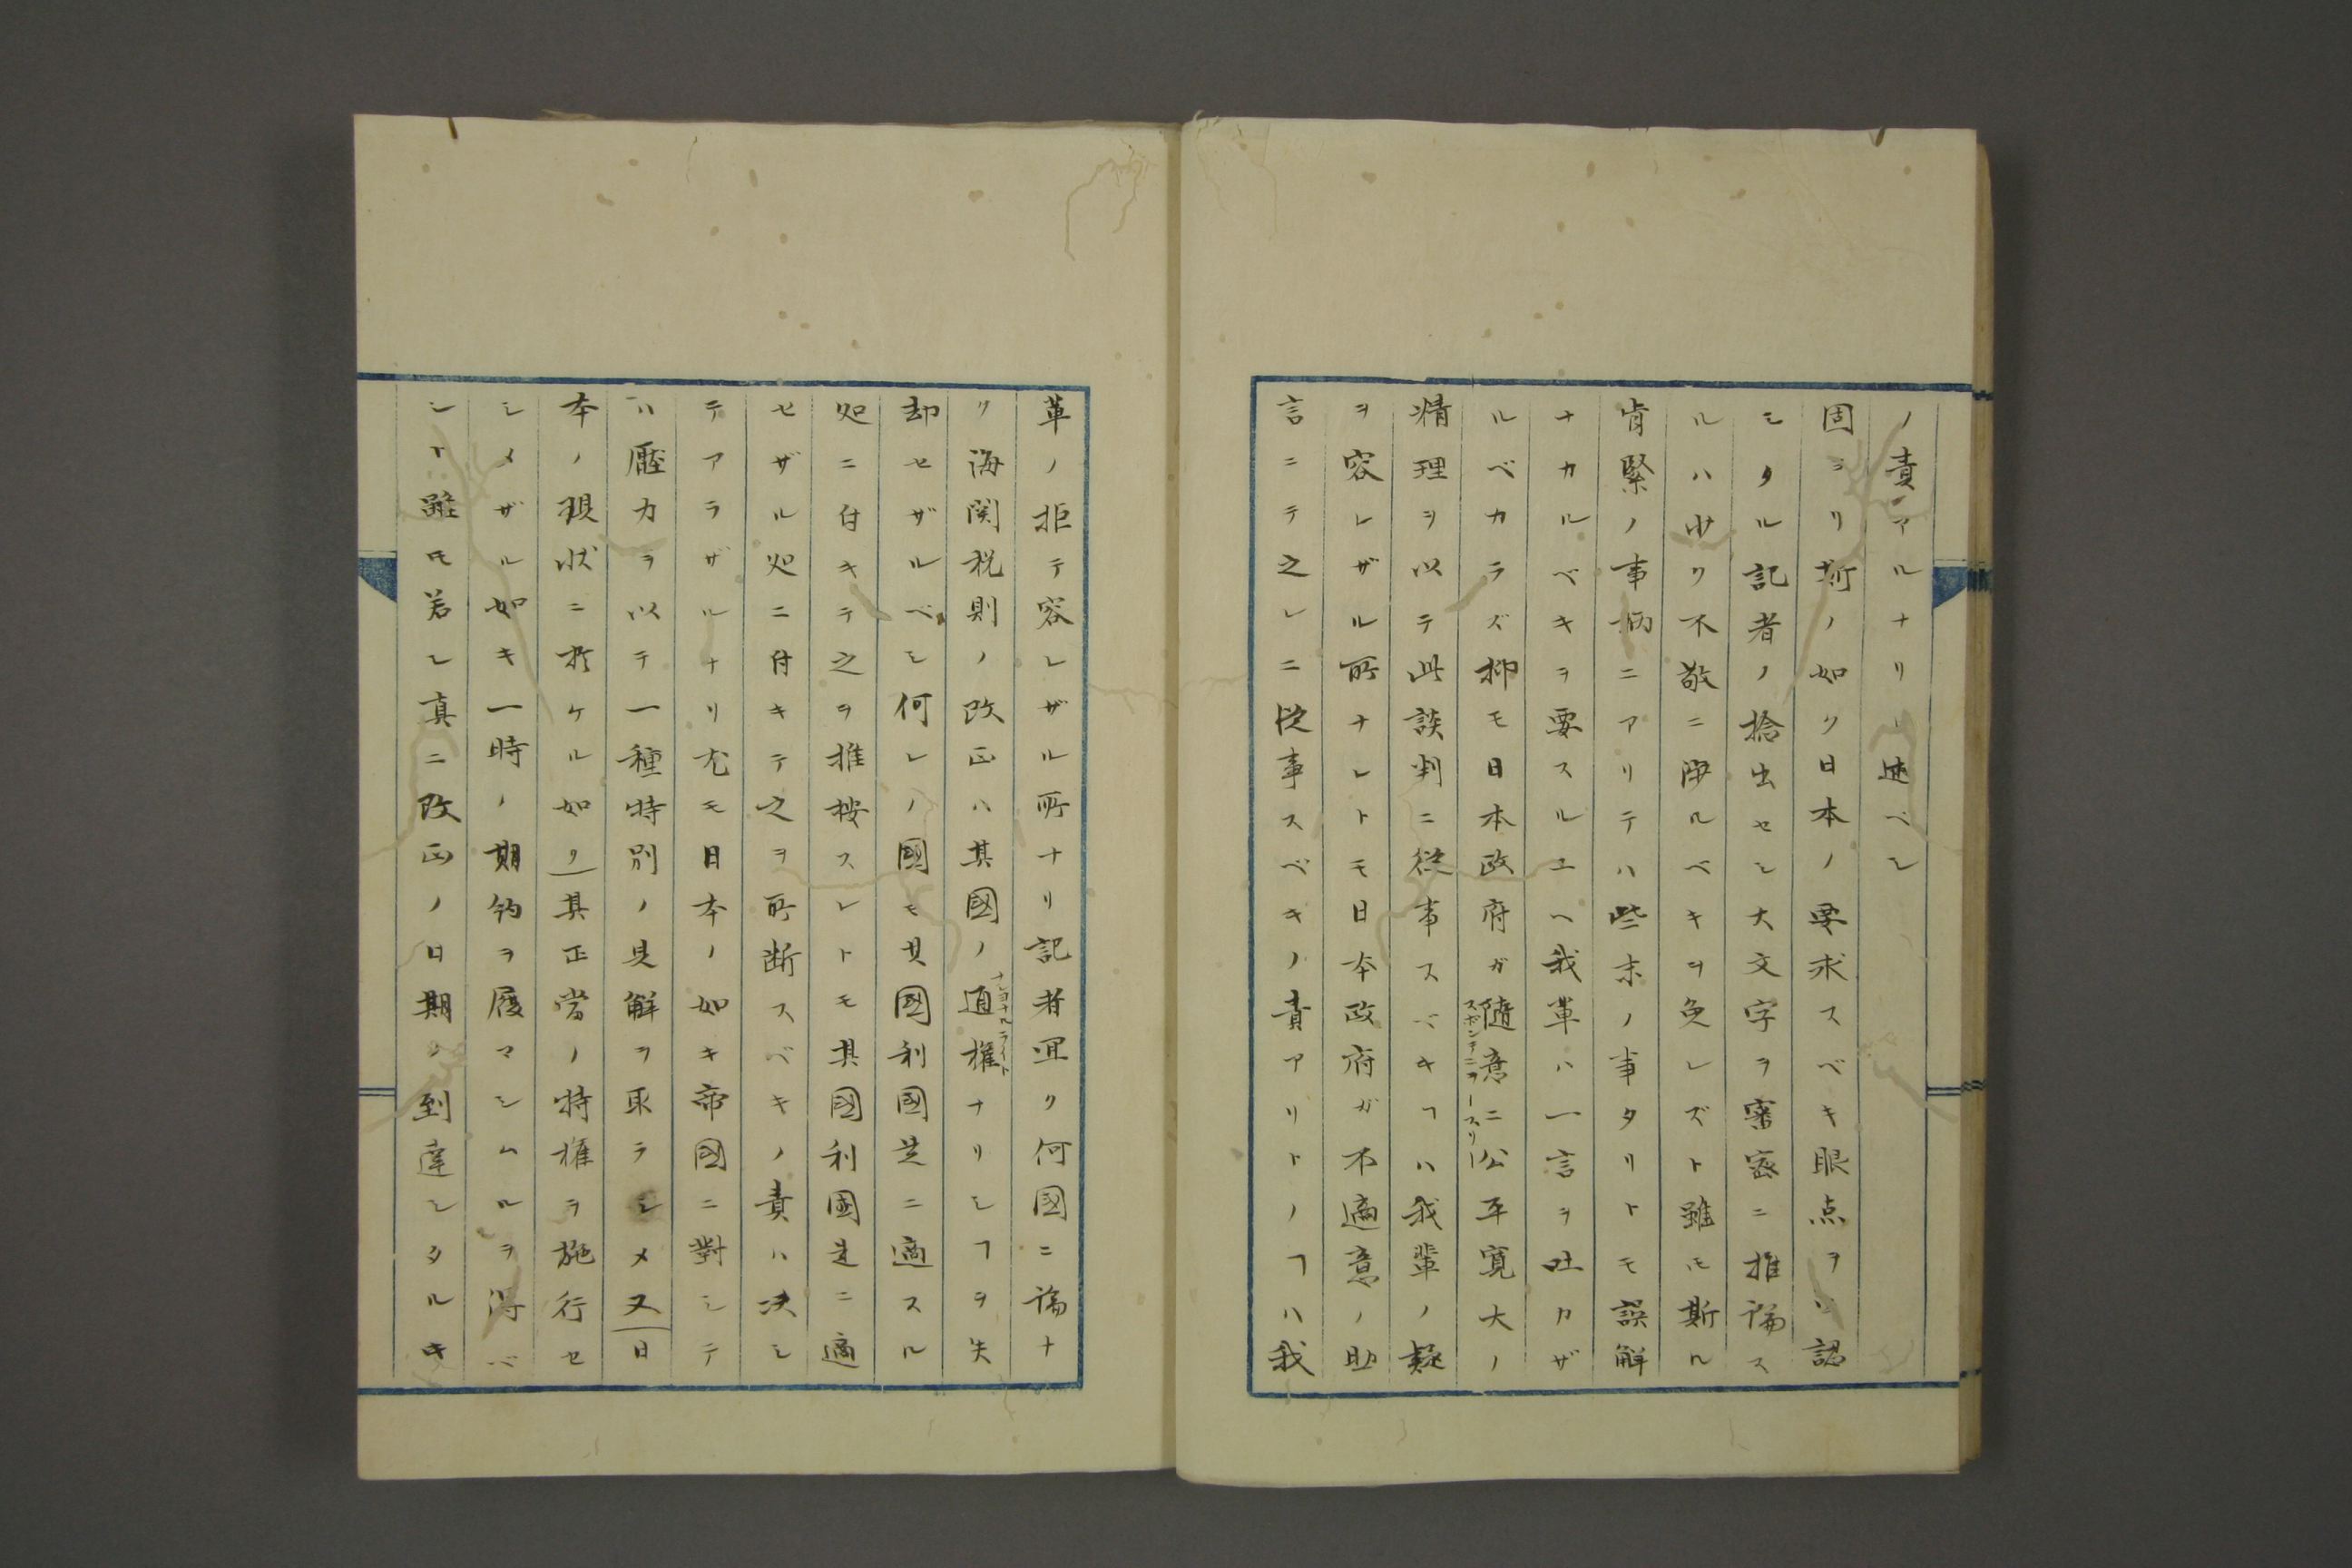 ノ責アルナリト述ベシ
固ヨリ斯ノ如ク日本ノ要求スベキ眼点ヲバ認
シタル記者ノ捻出セシ大文字ヲ審密ニ推論ス
ルハ少ク不敬ニ渉ルベキヲ免レズト雖モ斯ル
肯緊ノ事柄ニアリテハ些末ノ事タリトモ誤解
ナカルベキヲ要スルユヘ我輩ハ一言ヲ吐カザ
ルベカラズ抑モ日本政府ガ随意ニ公平寛大ノ
スポンテニヲースリー
精理ヲ以テ此談判ニ従事スベキヿハ我輩ノ疑
ヲ容レザル所ナレトモ日本政府ガ不適意ノ助
言ニテ之レニ従事スベキノ責アリトノヿハ我
輩ノ拒テ容レザル所ナリ記者宜ク何國ニ論ナ
ク海関税則ノ改正ハ其國ノ通権ナリシヿヲ失
ナショナルライト
却セザルベシ何レノ國モ其國利國是ニ適スル
処ニ付キテ之ヲ推按スレトモ其國利國是ニ適
セザル処ニ付キテ之ヲ所断スベキノ責ハ決シ
テアラザルナリ尤モ日本ノ如キ帝國ニ對シテ
ハ壓力ヲ以テ一種特別ノ見解ヲ取ラシメ又日
本ノ現状ニ於ケル如ク其正当ノ特権ヲ施行セ
シメザル如キ一時ノ期約ヲ履マシムルヲ得ベ
シト雖モ若シ真ニ改正ノ日期ノ到達シタルキ